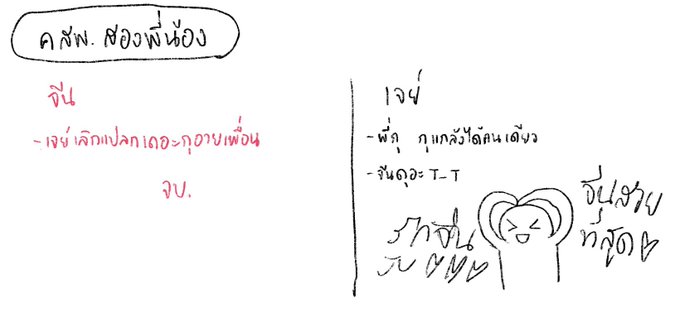 คสพ. สองพี่น้อง
จีน
-เจย์เลิกแปลกเถอะกูอายเพื่อน
จบ.
เจย์
-พี่กู กูแกล้งได้คนเดียว
-จีนดุอะ T-T
รักจีน
จีนสวย
ที่สุด♡